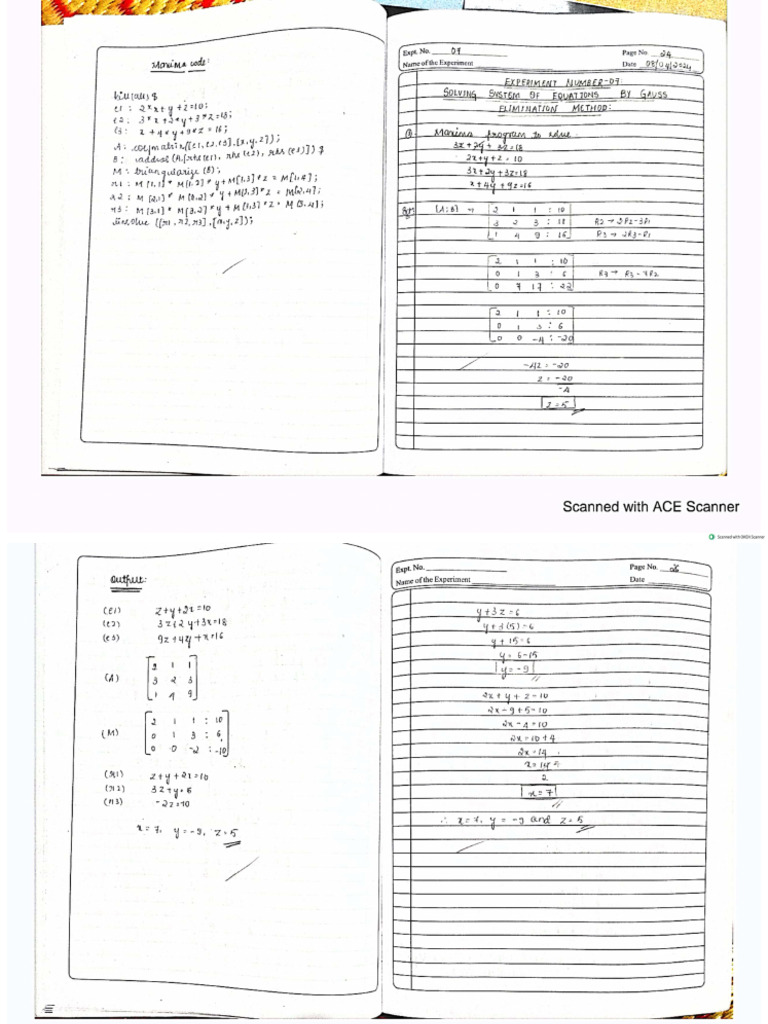 Maxima code:
kill(all) $
e1 : 2*x+y+z=10;
e2: 3*x+2*y+3*z=18;
e3: x+4*y+9*z=16;
A: coefmatrix([e1,e2,e3],[x,y,z]);
B: addcol(A,[rhs(e1), rhs(e2), rhs(e3)]) $
M: triangularize (B);
r1: M[1,1]* M[1,2]* y+M[1,3]*z = M[1,4];
r2: M[2,1]* M[2,2]*y+M[2,3]*z = M[2,4];
r3: M[3,1]* M[3,2]*y+M[3,3]*z= M[3,4];
linsolve ([r1,r2,r3],[x,y,z]);
Expt. No. 07
Page No. 24
Name of the Experiment
Date 08/04/2024
EXPERIMENT NUMBER-07:
SOLVING SYSTEM OF EQUATIONS BY GAUSS
ELIMINATION METHOD:
Q. Maxima program to solve
3x+2y + 3z=18
2x+y+z = 10
3x+2y+3z=18
x+4y+9z=16
[A:B] → 2 1 1 : 10
3 2 3 : 18 R2 → 2R2-3R1
1 4 9 : 16 R3 → 2R3-R1
2 1 1 : 10
0 1 3 : 6 R3 → R3-7R2
0 7 17 : 22
2 1 1 : 10
0 1 3 : 6
0 0 -4 : -20
-4z = -20
z = -20
-4
z=5
Scanned with ACE Scanner
Output:
(e1) z+y+2x=10
(e2) 3z+2y+3x=18
(e3) 9z+4y+x=16
(A) 2 1 1
3 2 3
1 4 9
(M) 2 1 1 : 10
0 1 3 : 6
0 0 -2 : -10
(r1) z+y+2x=10
(r2) 3z+y=6
(r3) -2z=10
x=7, y=-9, z=5
Expt. No.
Page No.
Name of the Experiment
Date
y+3z=6
y+3(5)=6
y+15=6
y=6-15
y=-9
2x+y+z=10
2x-9+5=10
2x-4=10
2x=10+4
2x=14
x=14
2
x=7
∴ x=7, y=-9 and z=5